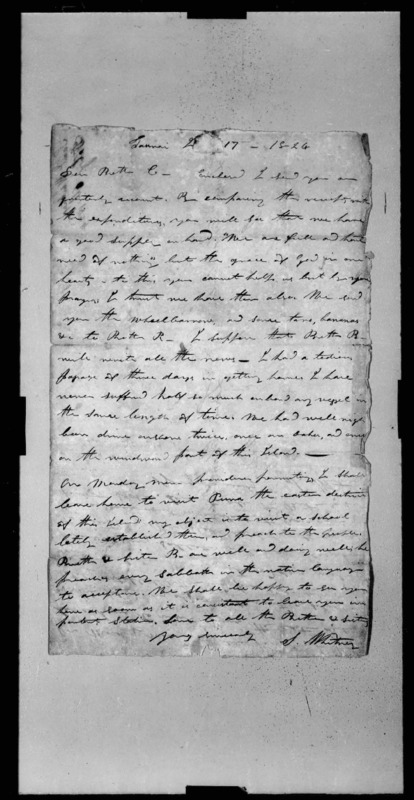 17 - 1826
Dear Brother C - Enclosed I send you our
quarterly account. By comparing the receipts with
the expenditures, you will see that we have
a good supply on hand. We are full and have
need of nothing but the grace of God in our
hearts - to this, you cannot help us but by your
prayers, & I trust we have them also. We send
you the wheelbarrow, and some taro, bananas
&c to Brother R - I suppose that Brother R -
will write all the news - I had a tedious
passage of three days in getting home. I have
never suffered half so much on board any vessel in
the same length of time. We had well nigh
been driven on shore twice, once on Oahu, and once
on the windward part of this Island. -
On Monday next providence permitting, I shall
leave home to visit Puna the eastern district
of this Island my object is to visit a school
lately established there, and preach to the people.
Brother & Sister R. are well and doing well, he
preaches every Sabbath in the native language
to acceptance. We shall be happy to see you
here as soon as it is consistent to leave your
present station. Love to all the Brethren & Sisters
Yours sincerely S. Whitney